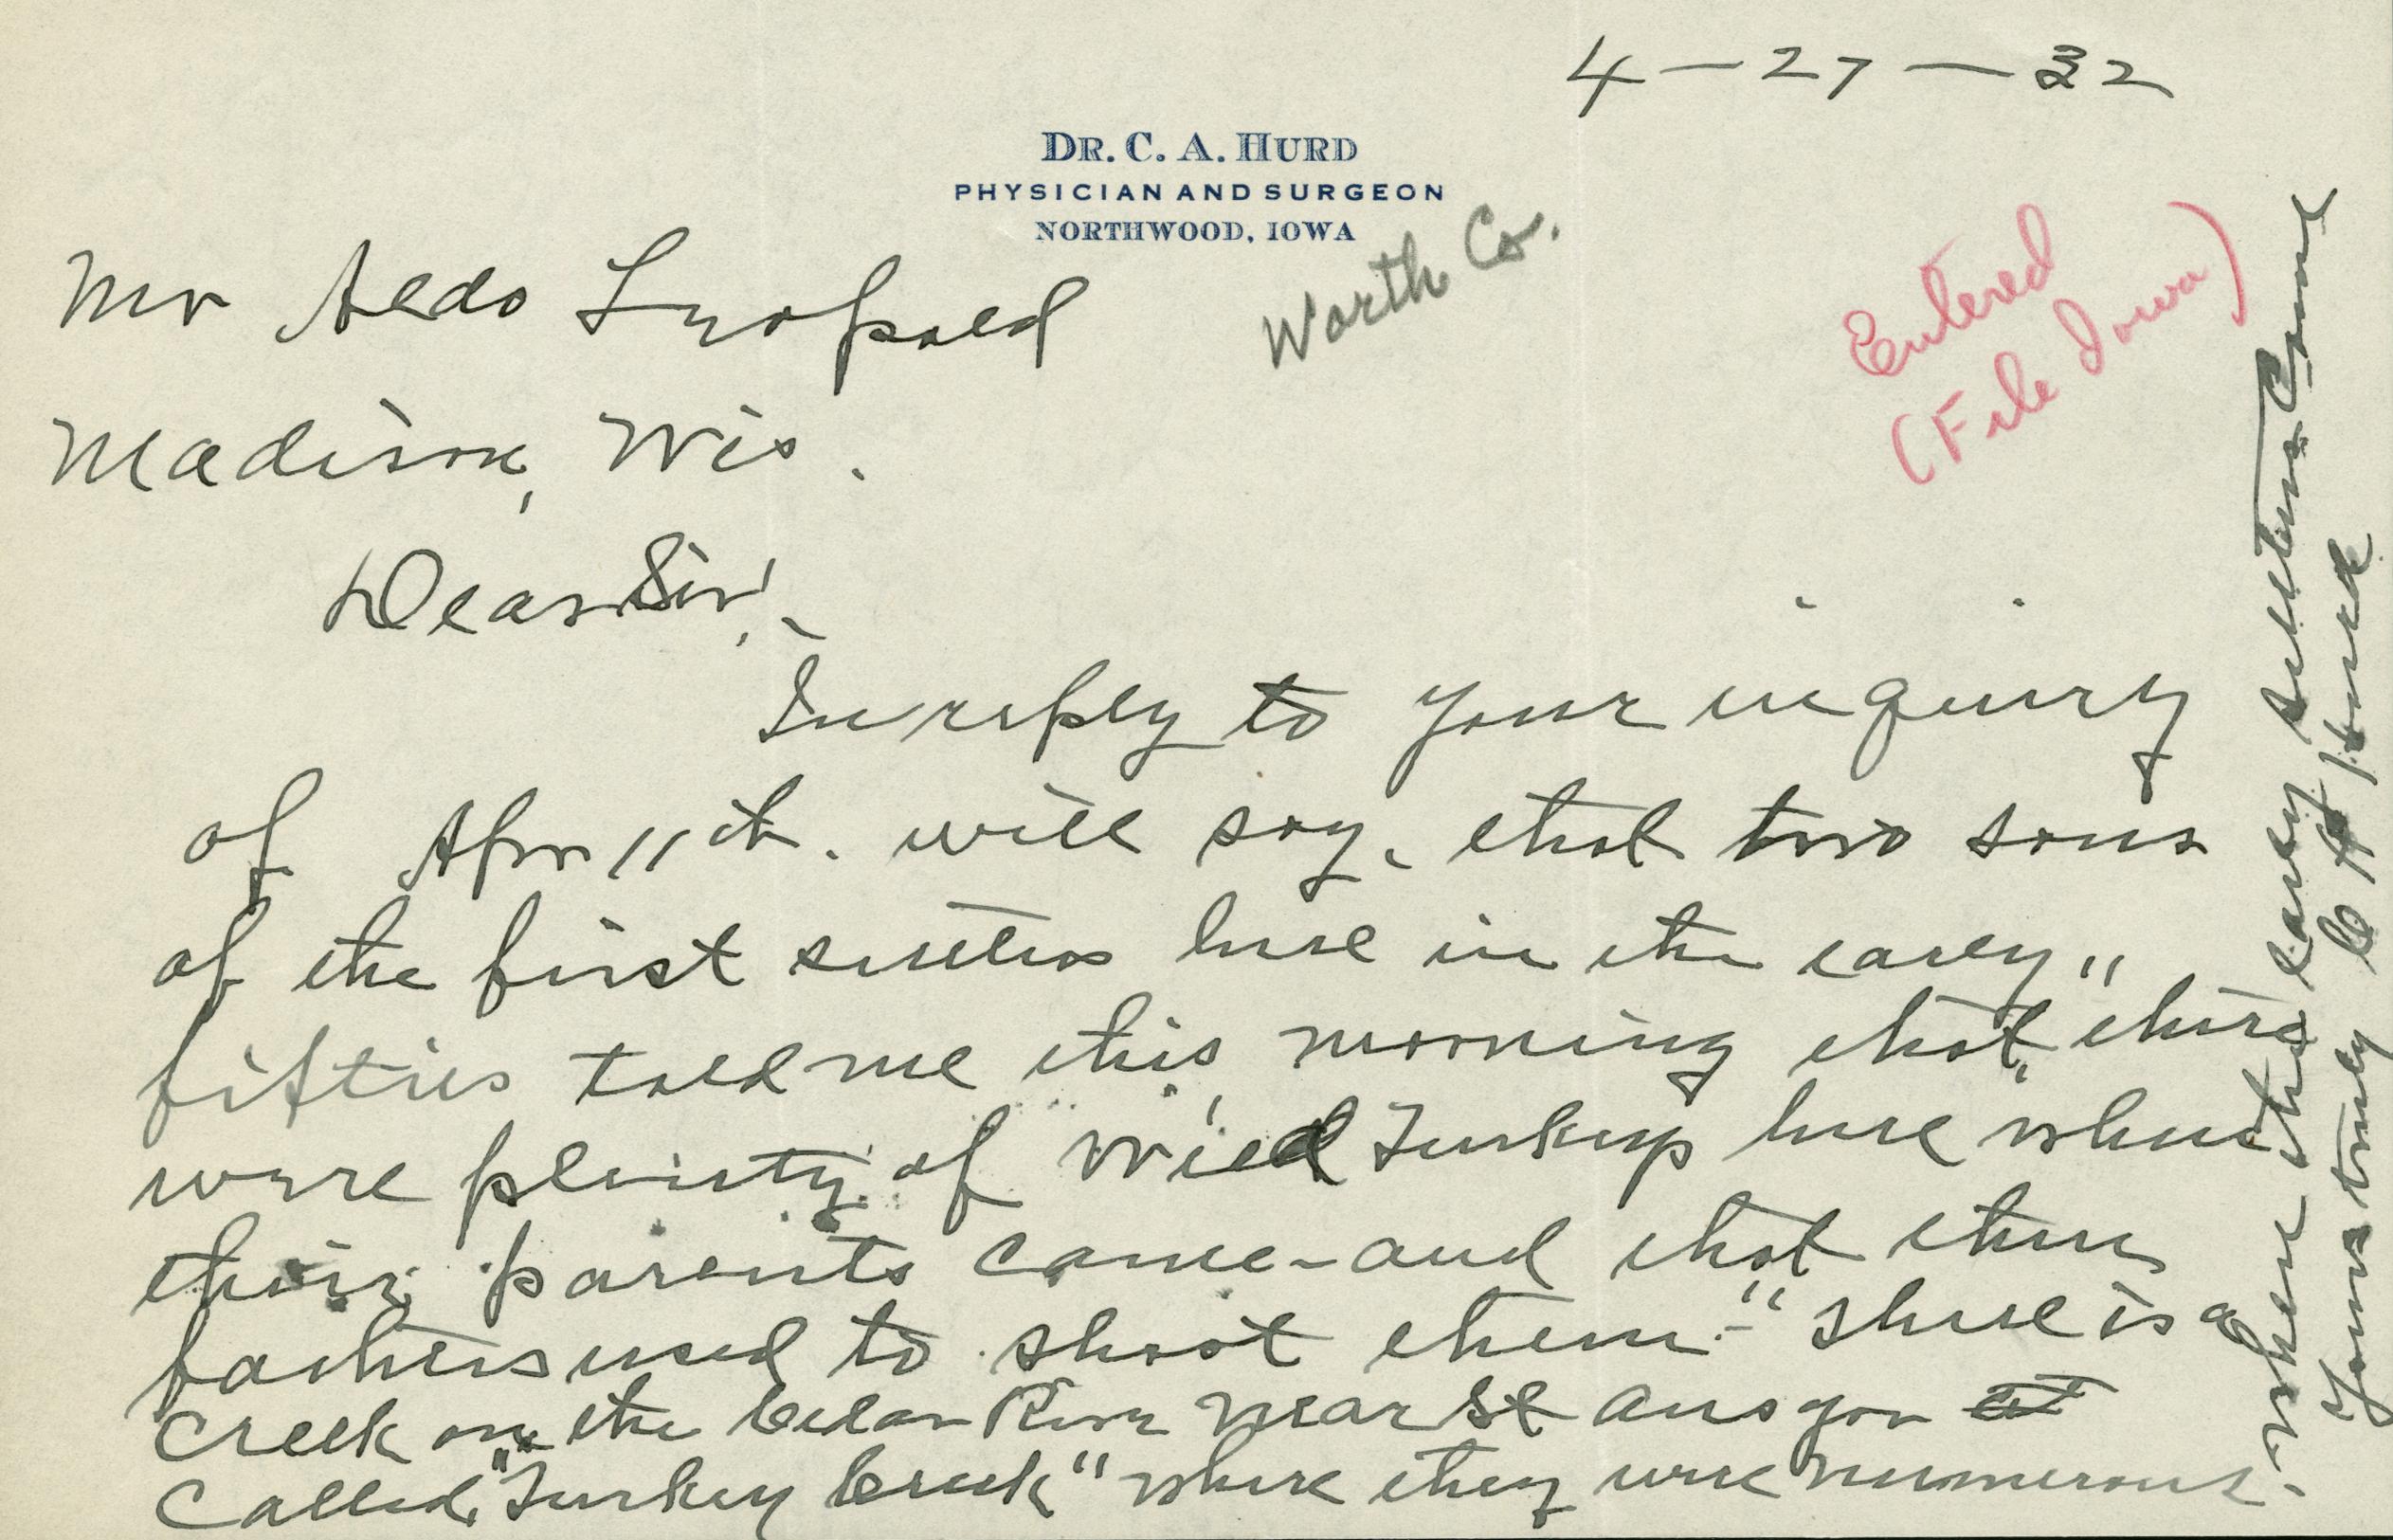 4-27-32
DR. C. A. HURD
PHYSICIAN AND SURGEON
NORTHWOOD, IOWA
Worth Co.
Entered
(File Iowa)
Mr Aldo Leopold
Madison, Wis.
Dear Sir,-
In reply to your inquiry
of Apr 11th. will say, that two sons
of the first settlers here in the early
fifties told me this morning that "there
were plenty of Wild Turkeys here when
their parents came-and that their
fathers used to shoot them-" There is a
Creek on the Cedar River near St Ansgar
Called "Turkey Creek" where they were numerous.
When the early settlers Came
Yours truly C A Hurd